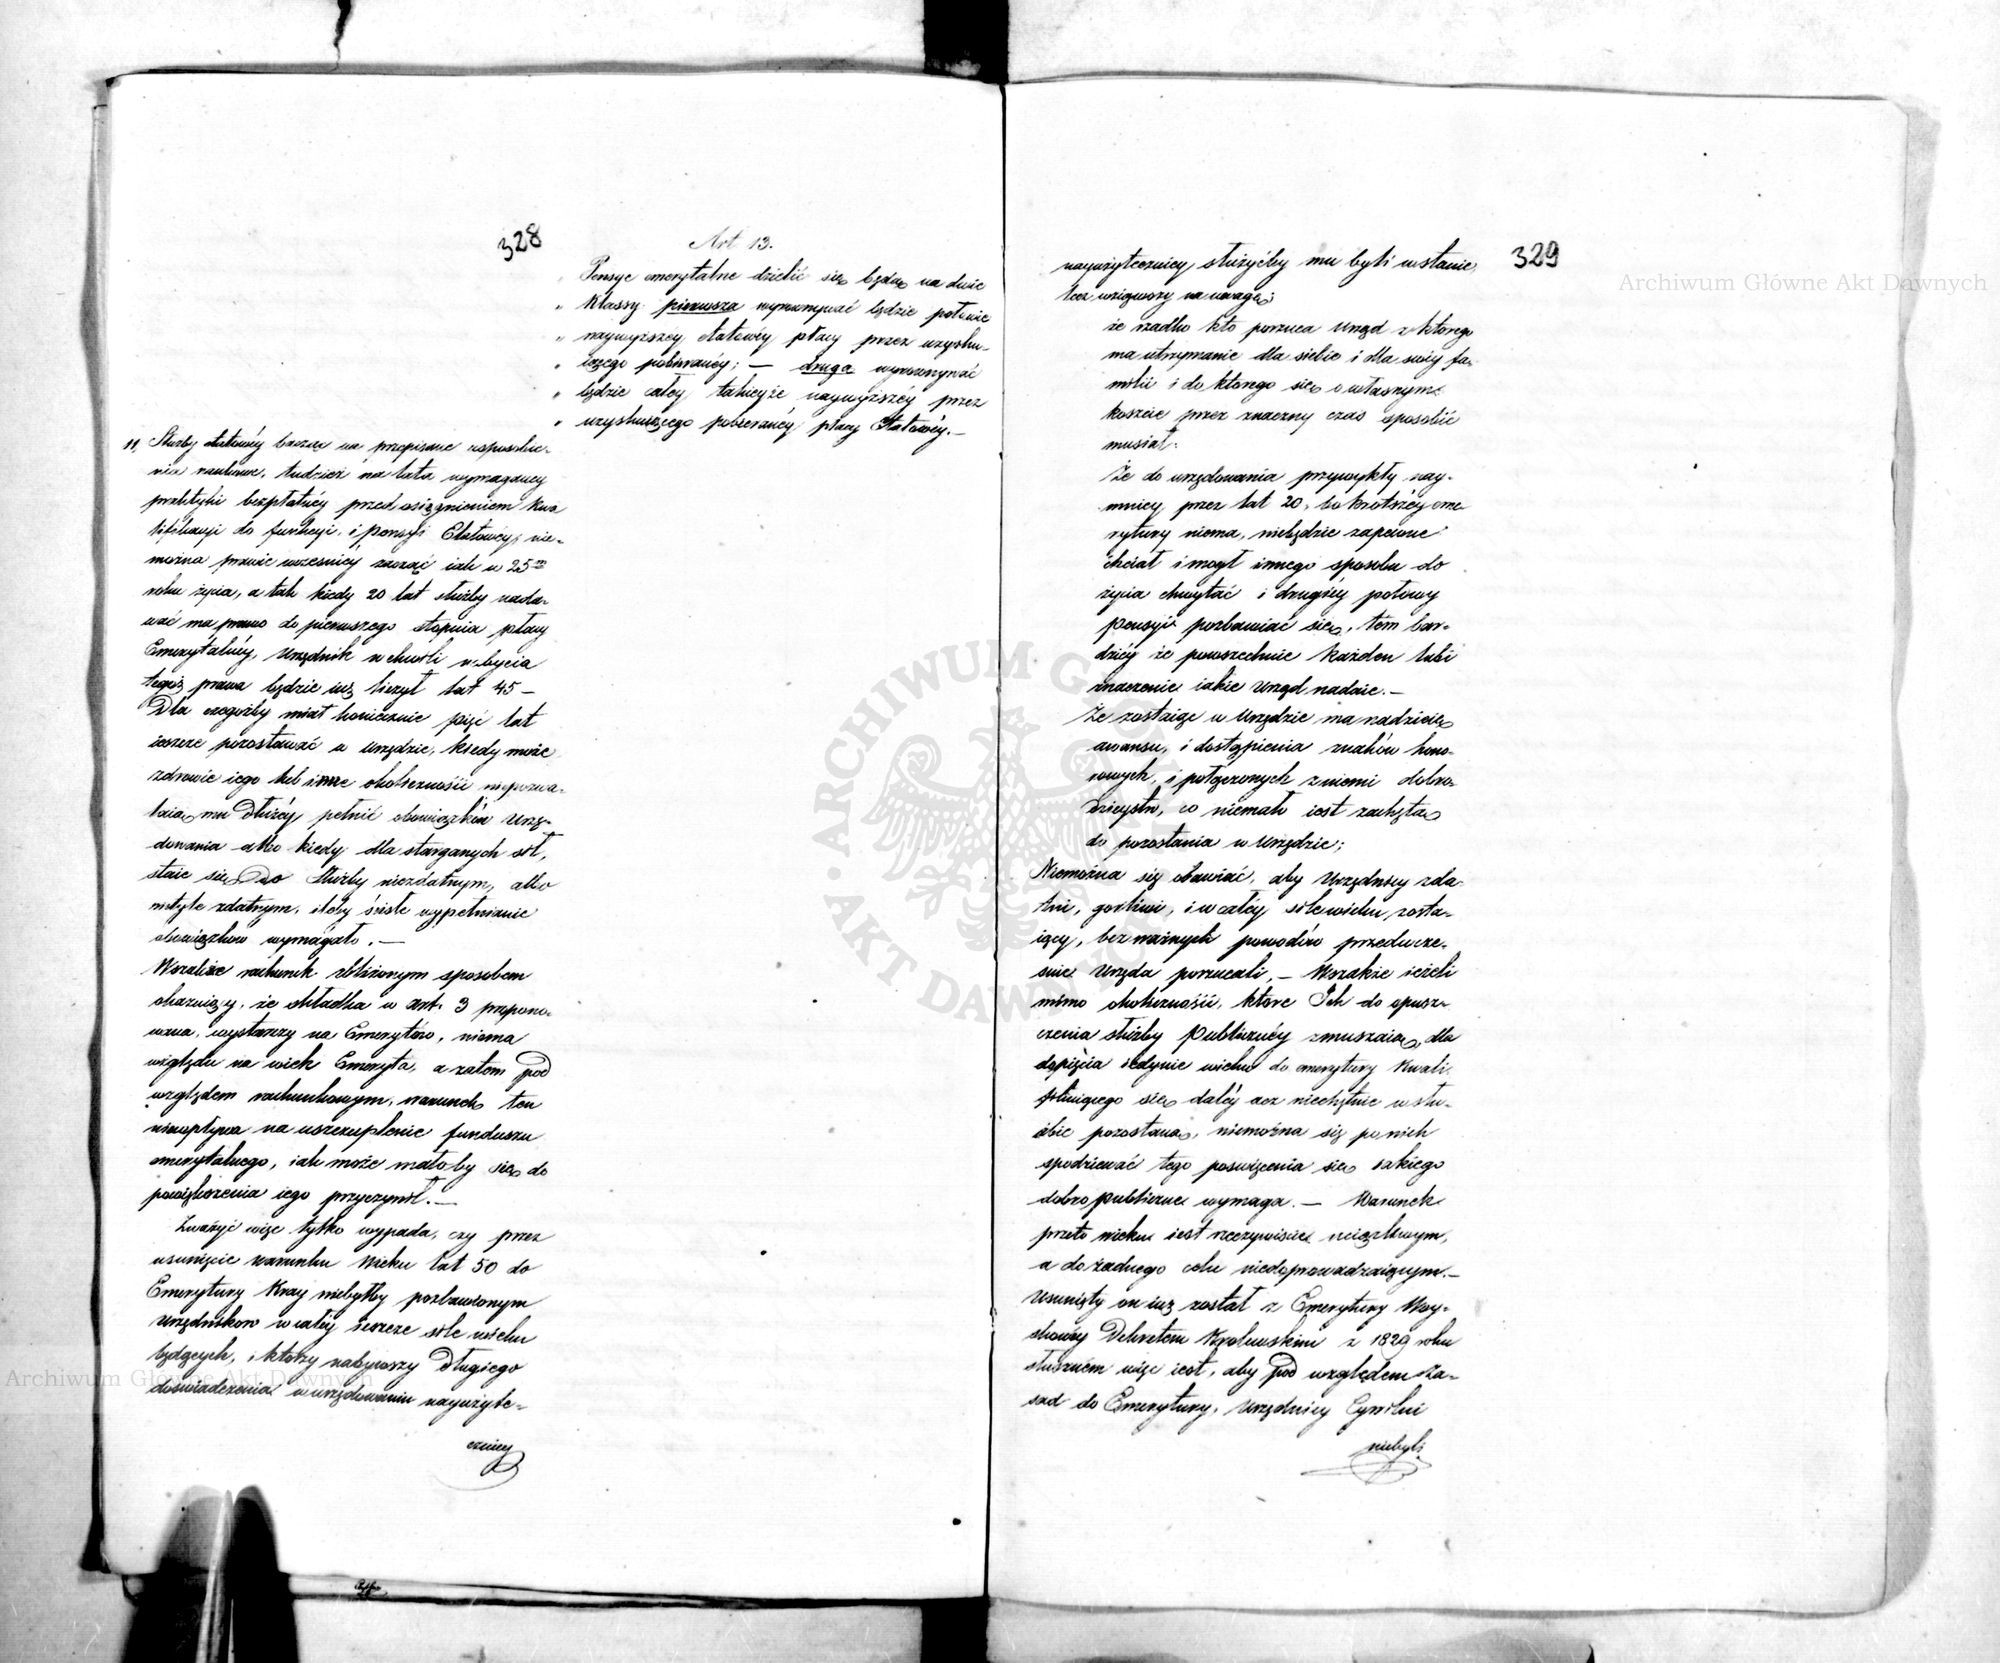 328
Art 13.
„ Pensye emerytalne dzielić się będą na dwie
„ Klassy pierwsza wyrównywać będzie połowie
„ naywyższéy etatowéy płacy przez uzysku-
„ iącego pobieranéy; — druga wyrównywać
„ będzie całéy takieyże naywyższéy przez
„ uzyskuiącego pobieranéy płacy Etatowéy. —
11, Służby etatowéy bacząc na przepisane usposobie-
nia naukowe, tudzież na lata wymaganéy
praktyki bezpłatnéy przed osiągnieniem kwa
lifikacyi do funkcyi, i pensyi Etatowéy, nie-
można prawie wcześniéy zacząć iak w 25ym
roku życia, a tak kiedy 20 lat służby nada-
wać ma prawo do pierwszego stopnia płacy
Emerytalnéy, Urzędnik w chwili nabycia
tegoż prawa będzie iuż liczył lat 45 —
Dla czegożby miał koniecznie pięć lat
ieszcze pozostawać w urzędzie, kiedy może
zdrowie iego lub inne okoliczności niepozwa-
laią mu dłużéy pełnić obowiązków Urzę-
dowania albo kiedy dla starganych sił,
staie się do Służby niezdatnym, albo
nietyle zdatnym, ileby ścisłe wypełnianie
obowiązków wymagało. —
Wszakże rachunek zbliżonym sposobem
okazuiący, że składka w art. 3 propono-
wana, wystarczy na Emerytów, niema
względu na wiek Emeryta, a zatem pod
względem rachunkowym, warunek ten
niewpływa na uszczuplenie funduszu
emerytalnego, iak może małoby się do
powiększenia iego przyczynił. —
Zważyć więc tylko wypada, czy przez
usunięcie warunku Wieku lat 50 do
Emerytury Kray niebyłby pozbawionym
Urzędników w całéy ieszcze sile wieku
będących, i którzy nabywszy długiego
doświadczenia w urzędowaniu nayużyte-
czniey
329
nayużyteczniey służyćby mu byli w stanie,
lecz wziąwszy na uwagę;
że rzadko kto porzuca Urząd z którego
ma utrzymanie dla siebie i dla swéy fa-
milii i do którego się o własnym
koszcie przez znaczny czas sposobić
musiał.
Że do urzędowania przywykły nay-
mniey przez lat 20, bo krótszéy eme-
rytury niema, niebędzie zapewne
chciał i mógł innego sposobu do
życia chwytać i drugiéy połowy
pensyi pozbawiać się, tém bar-
dziéy że powszechnie każden lubi
znaczenie iakie Urząd nadaie. —
Że zostaiąc w Urzędzie ma nadzieię
awansu, i dostąpienia znaków hono-
rowych, i połączonych z niemi dobro-
dzieystw, co niemało iest zachętą
do pozostania w Urzędzie;
Niemożna się obawiać, aby Urzędnicy zda-
tni, gorliwi, i w całéy sile wieku zosta-
iący, bez ważnych powodów przedwcze-
śnie Urzęda porzucali. — Wszakże ieżeli
mimo okoliczności, które Ich do opusz-
czenia służby publicznéy zmuszaią, dla
dopięcia iedynie wieku do emerytury kwali-
fikuiącego się daléy acz niechętnie w słu-
żbie pozostaną, niemożna się po nich
spodziewać tego poświęcenia się iakiego
dobro publiczne wymaga. — Warunek
przeto wieku iest rzeczywiście uciążliwym,
a do żadnego celu niedoprowadzaiącym. —
Usunięty on iuż został z Emerytury Woy-
skowéy Dekretem Królewskim z 1829 roku
słuszném więc iest, aby pod względem Za-
sad do Emerytury, Urzędnicy Cywilni
niebyli
Archiwum Główne Akt Dawnych
Archiwum Główne Akt Dawnych
ARCHIWUM GŁÓWNE AKT DAWNYCH